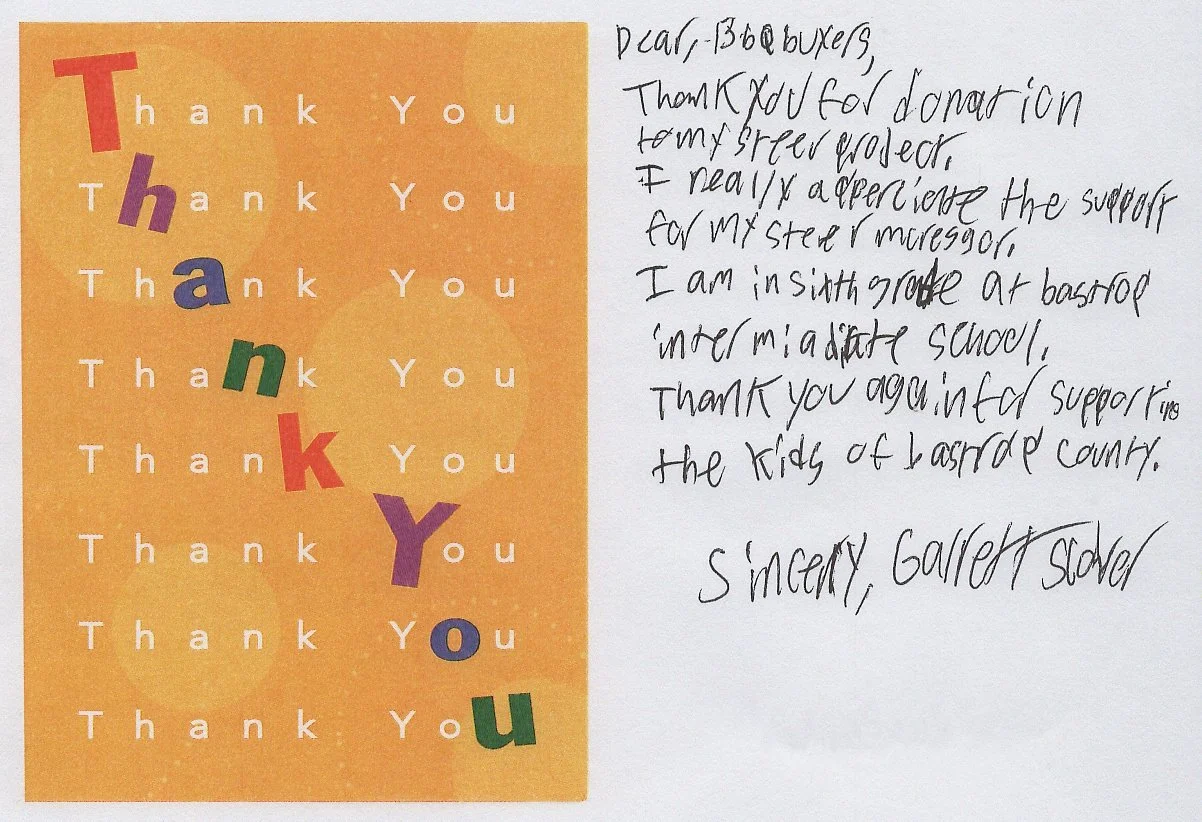 Thank You
Thank You
Thank You
Thank You
Thank You
Thank You
Thank You
Thank You
Dear, Bbq buyers,
Thank you for donation
to my steer project.
I really apperciate the support
for my steer mcreggor.
I am in sixth grade at bastrop
intermiadiate school.
Thank you again for supporting
the kids of bastrop county.
Sincerly, Garrett